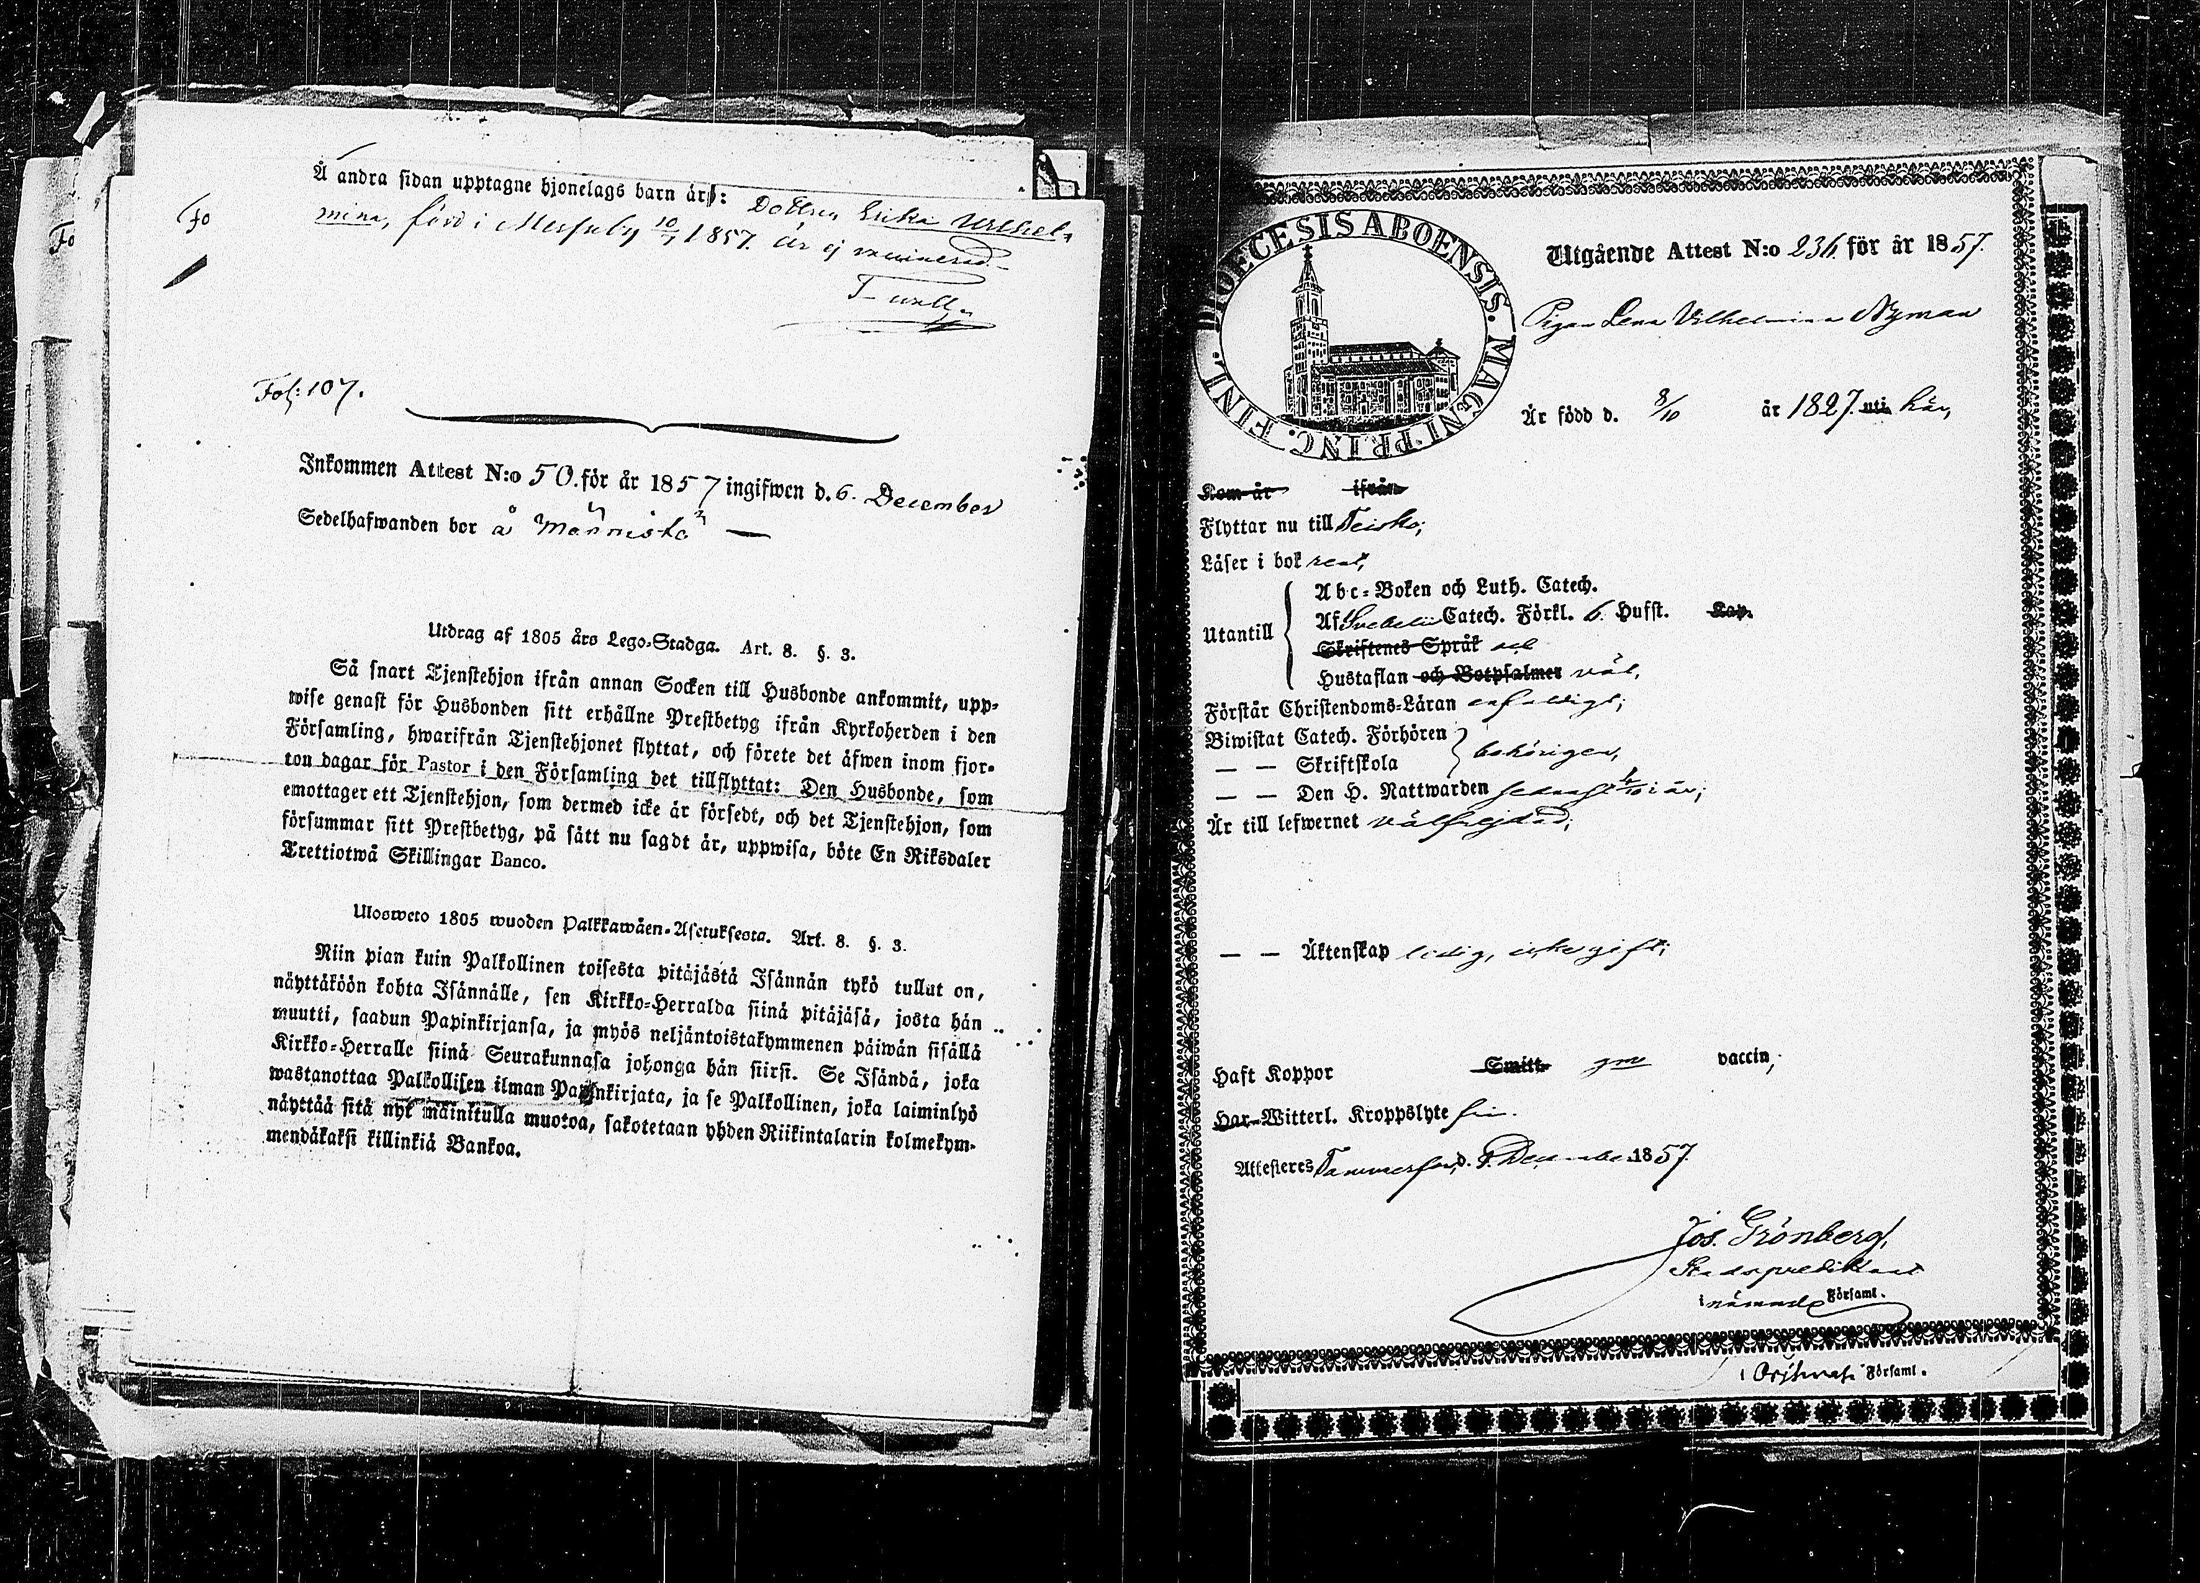 Å andra sidan upptagne hjonelags barn är: Dottren Erika Wilhel-
mina, född i Messuby 10/7 1857. är ej vaccinerad.
Fol: 107.
Inkommen Attest N:o 50. för år 1857 ingifwen d. 6. December
Sedelhafwanden bor å "Männistö" —
Utdrag af 1805 års Lego-Stadga. Art. 8. §. 3.
Så snart Tjenstehjon ifrån annan Socken till Husbonde ankommit, upp-
wise genast för Husbonden sitt erhållne Prestbetyg ifrån Kyrkoherden i den
Församling, hwarifrån Tjenstehjonet flyttat, och förete det äfwen inom fjor-
ton dagar för Pastor i den Församling det tillflyttat: Den Husbonde, som
emottager ett Tjenstehjon, som dermed icke är försedt, och det Tjenstehjon, som
försummar sitt Prestbetyg, på sätt nu sagdt är, uppwisa, böte En Riksdaler
Trettiotwå Skillingar Banco.
Ulosweto 1805 wuoden Palkkawäen-Asetuksesta. Art. 8. §. 3.
Niin pian kuin Palkollinen toisesta pitäjästä Isännän tykö tullut on,
näyttäköön kohta Isännälle, sen Kirkko-Herralda siinä pitäjäsä, josta hän
muutti, saadun Papinkirjansa, ja myös neljäntoistakymmenen päiwän sisällä
Kirkko-Herralle siinä Seurakunnasa johonga hän siirsi. Se Isändä, joka
wastanottaa Palkollisen ilman Papinkirjata, ja se Palkollinen, joka laiminlyö
näyttää sitä nyt mainitulla muotoa, sakotetaan yhden Riikintalarin kolmekym-
mendäkaksi killinkiä Bankoa.
Fo
Fo
DIOECESIS ABOENSIS. MAGNI PRINC. FINL.
Utgående Attest N:o 236 för år 1857.
Pigan Lena Vilhelmina Nyman
Är född d. 8/10 år 1827. uti här,
Kom år ifrån
Flyttar nu till Teisko;
Läser i bok rent,
Utantill
Abc-Boken och Luth. Catech.
Af Svebelii Catech. Förkl. 6. Hufst. Kap.
Skriftenes Språk och
Hustaflan och Botpsalmer väl,
Förstår Christendoms-Läran enfaldigt;
Biwistat Catech. Förhören
— — Skriftskola behörigen,
— — Den H. Nattwarden senast i år;
Är till lefwernet välfrejdad,
— — Äktenskap ledig, icke gift;
Haft Koppor Smitt- gm vaccin,
Har Witterl. Kroppslyte fri.
Attesteres Tammerfors, d. December 1857.
Jos. Grönberg,
Stadspredikant
i nämnde Församl.
i Församl.